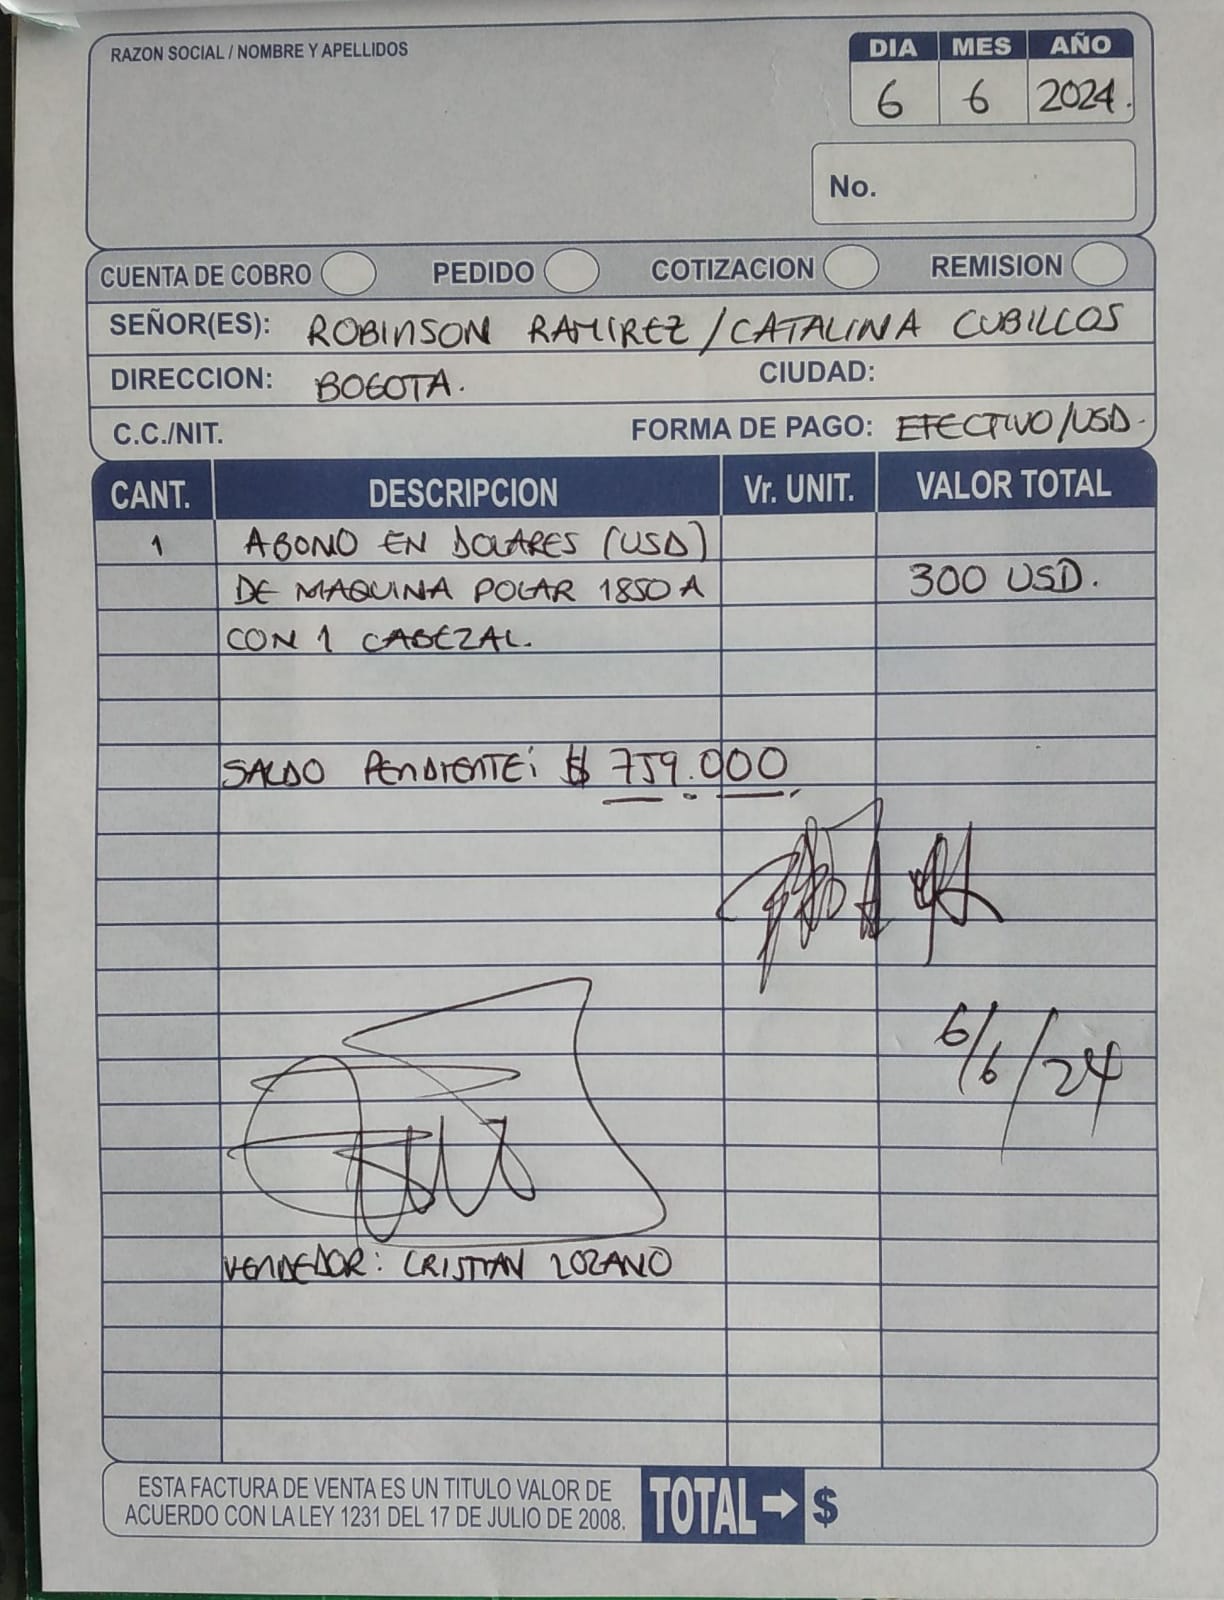 RAZON SOCIAL / NOMBRE Y APELLIDOS
DIA MES AÑO
6 6 2024.
No.
CUENTA DE COBRO PEDIDO COTIZACION REMISION
SEÑOR(ES): ROBINSON RAMIREZ / CATALINA CUBILLOS
DIRECCION: BOGOTA. CIUDAD:
C.C./NIT. FORMA DE PAGO: EFECTIVO/USD.
CANT. DESCRIPCION Vr. UNIT. VALOR TOTAL
1 ABONO EN DOLARES (USD)
DE MAQUINA POLAR 1850 A 300 USD.
CON 1 CABEZAL.
SALDO PENDIENTE: $ 759.000
6/6/24
VENDEDOR: CRISTIAN LOZANO
ESTA FACTURA DE VENTA ES UN TITULO VALOR DE
ACUERDO CON LA LEY 1231 DEL 17 DE JULIO DE 2008.
TOTAL → $